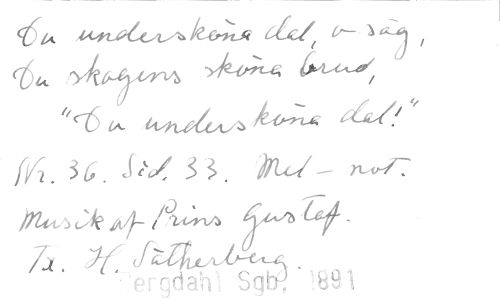 Du undersköna dal, o säg,
Du skogens sköna brud,
"Du undersköna dal!"
Nr. 36. Sid. 33. Mel - not.
Musik af Prins Gustaf.
Tx. H. Sätherberg.
Bergdahl Sgb. 1891